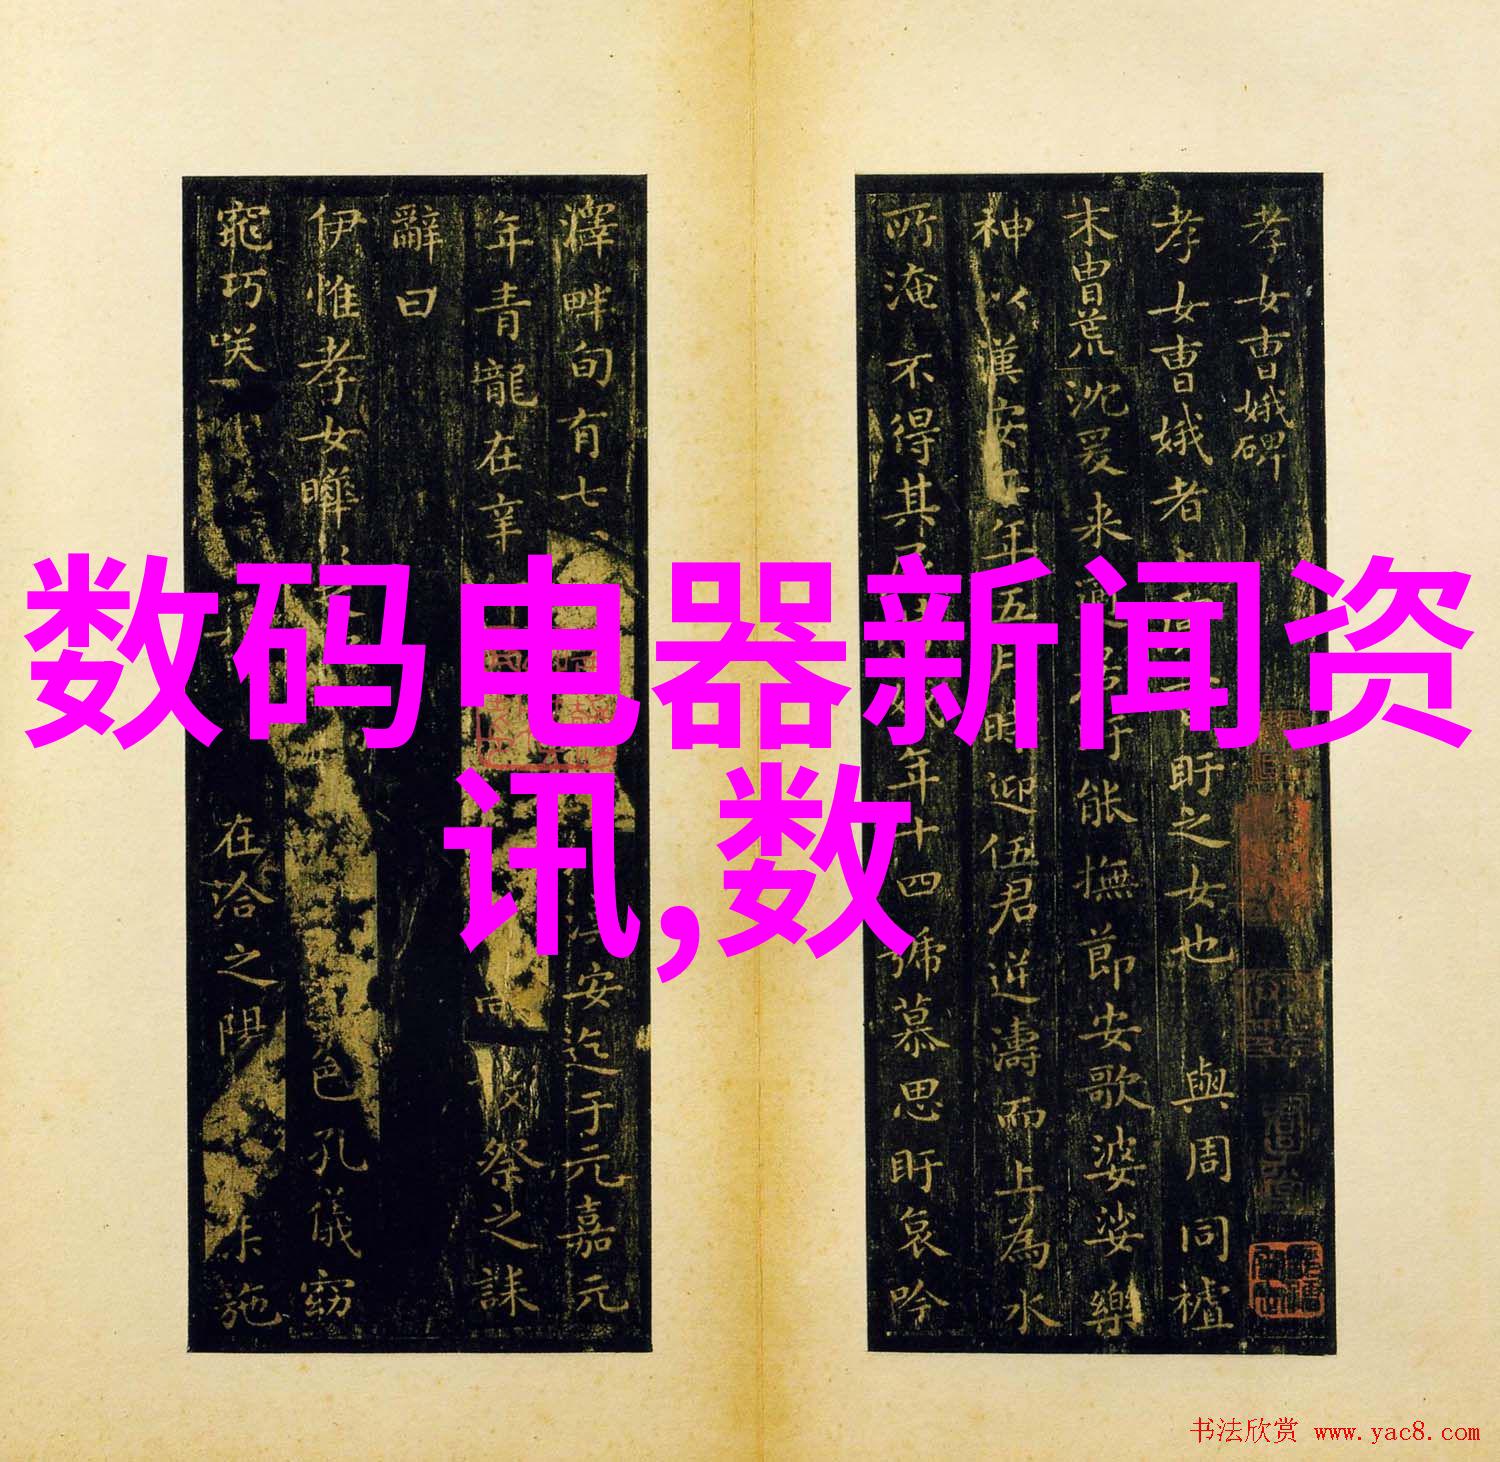 孝女曹娥碑
孝女曹娥者
盱之女也
與周同
末胄荒沈爰来
於能撫節安歌婆娑樂
神以漢安
年五月時迎伍君逆濤而上為水
所淹不得其
年十四號慕思盱哀吟
澤畔旬有七
安迄于元嘉元
年青龍在辛
祭之誄
辭曰
伊惟孝女曄
色孔儀窈
窕巧咲
在洽之陽
施
数码电器新闻资
讯,数
书法欣赏 www.yac8.com